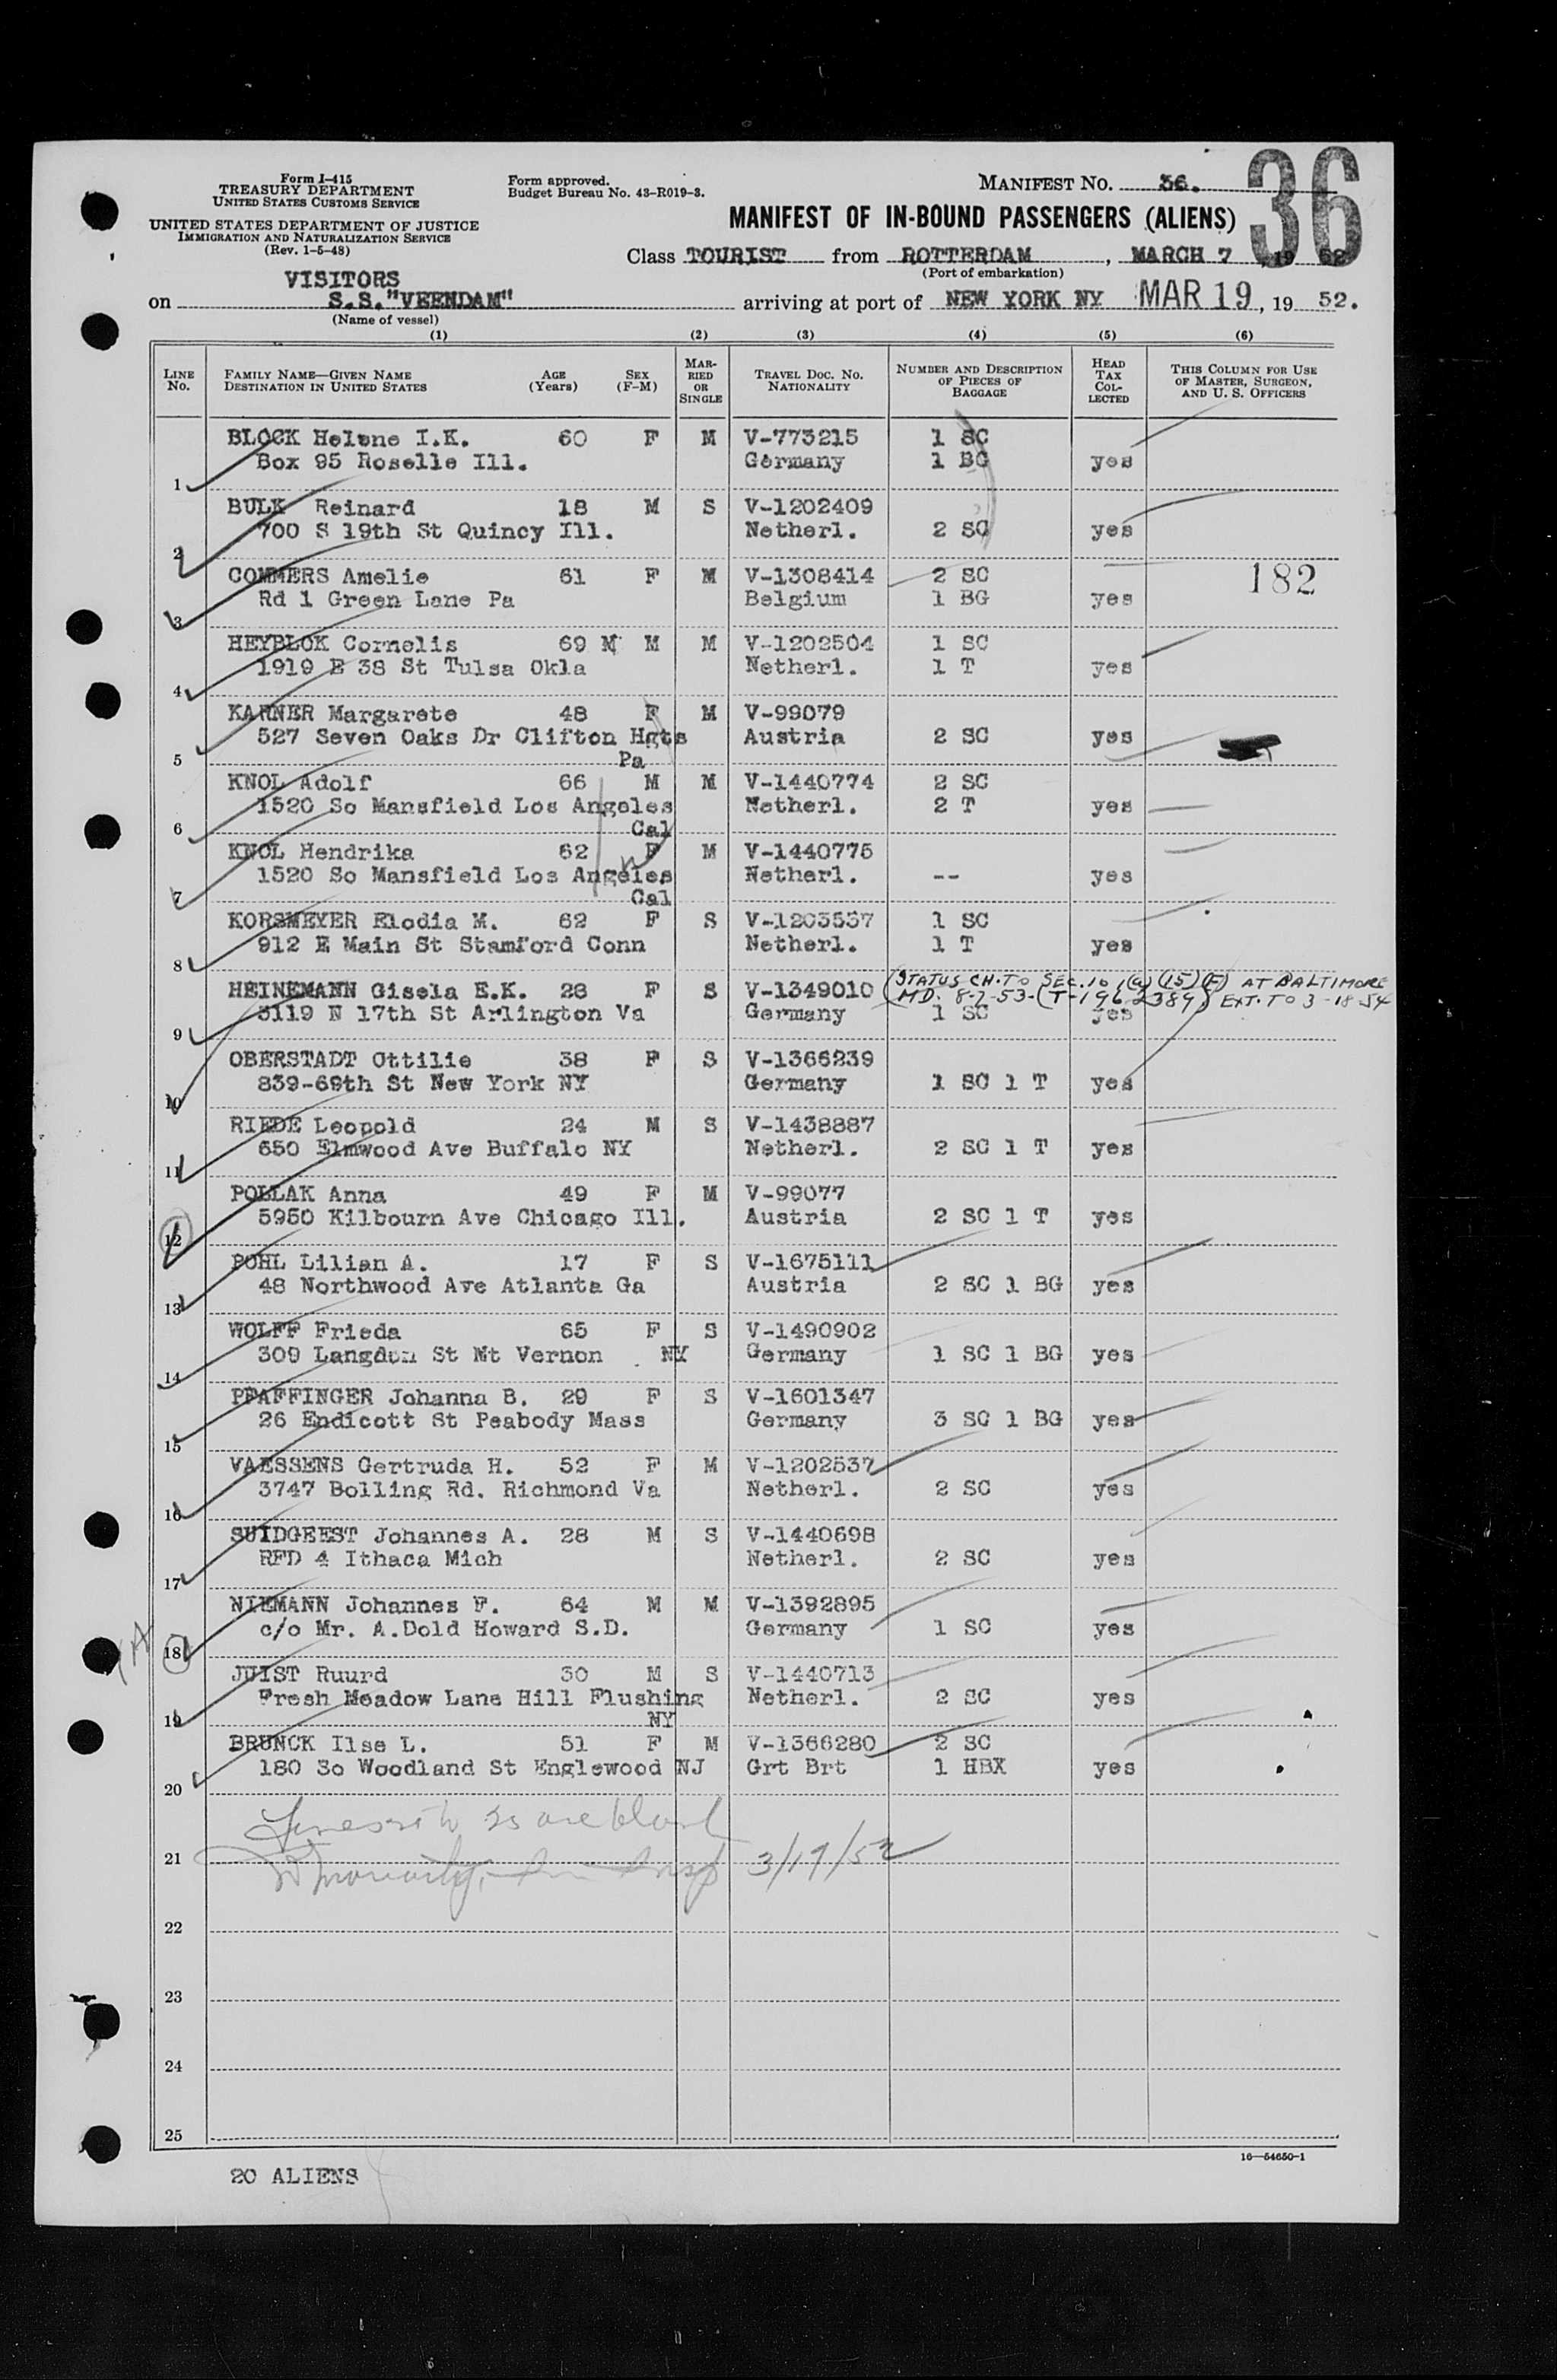 Form I-415
TREASURY DEPARTMENT
UNITED STATES CUSTOMS SERVICE
UNITED STATES DEPARTMENT OF JUSTICE
IMMIGRATION AND NATURALIZATION SERVICE
(Rev. 1-5-48)
Form approved.
Budget Bureau No. 43-R019-3.
MANIFEST NO. 36.
36
MANIFEST OF IN-BOUND PASSENGERS (ALIENS)
Class TOURIST from ROTTERDAM, MARCH 7, 19 52
(Port of embarkation)
VISITORS
on S.S."VEENDAM" arriving at port of NEW YORK NY MAR 19, 19 52.
(Name of vessel)
(1) (2) (3) (4) (5) (6)
LINE No. FAMILY NAME—GIVEN NAME DESTINATION IN UNITED STATES AGE (Years) SEX (F-M) MARRIED OR SINGLE TRAVEL DOC. NO. NATIONALITY NUMBER AND DESCRIPTION OF PIECES OF BAGGAGE HEAD TAX COLLECTED THIS COLUMN FOR USE OF MASTER, SURGEON, AND U. S. OFFICERS
BLOCK Helene I.K. 60 F M V-773215 1 SC
Box 95 Roselle Ill. Germany 1 BG yes
1
BULK Reinard 18 M S V-1202409
700 S 19th St Quincy Ill. Netherl. 2 SC yes
2
COMMERS Amelie 61 F M V-1308414 2 SC 182
Rd 1 Green Lane Pa Belgium 1 BG yes
3
HEYBLOK Cornelis 69 M M M V-1202504 1 SC
1919 E 38 St Tulsa Okla Netherl. 1 T yes
4
KARNER Margarete 48 F M V-99079
527 Seven Oaks Dr Clifton Hgts Austria 2 SC yes
5 Pa
KNOL Adolf 66 M M V-1440774 2 SC
1520 So Mansfield Los Angeles Netherl. 2 T yes
6 Cal
KNOL Hendrika 62 F M V-1440775
1520 So Mansfield Los Angeles Netherl. -- yes
7 Cal
KORSMEYER Elodia M. 62 F S V-1203537 1 SC
912 E Main St Stamford Conn Netherl. 1 T yes
8
HEINEMANN Gisela E.K. 28 F S V-1349010 (STATUS CH. TO SEC. 101(a)(15)(F) AT BALTIMORE
MD. 8-7-53-(T-1962389) EXT. TO 3-18-54
3119 N 17th St Arlington Va Germany 1 SC yes
9
OBERSTADT Ottilie 38 F S V-1366239
839-69th St New York NY Germany 1 SC 1 T yes
10
RIEDE Leopold 24 M S V-1438887
650 Elmwood Ave Buffalo NY Netherl. 2 SC 1 T yes
11
POLLAK Anna 49 F M V-99077
5950 Kilbourn Ave Chicago Ill. Austria 2 SC 1 T yes
12
POHL Lilian A. 17 F S V-1675111
48 Northwood Ave Atlanta Ga Austria 2 SC 1 BG yes
13
WOLFF Frieda 65 F S V-1490902
309 Langdon St Mt Vernon NY Germany 1 SC 1 BG yes
14
PFAFFINGER Johanna B. 29 F S V-1601347
26 Endicott St Peabody Mass Germany 3 SC 1 BG yes
15
VAESSENS Gertruda H. 52 F M V-1202537
3747 Bolling Rd. Richmond Va Netherl. 2 SC yes
16
SUIDGEEST Johannes A. 28 M S V-1440698
RFD 4 Ithaca Mich Netherl. 2 SC yes
17
NIEMANN Johannes F. 64 M M V-1392895
c/o Mr. A.Dold Howard S.D. Germany 1 SC yes
18
JUIST Ruurd 30 M S V-1440713
Fresh Meadow Lane Hill Flushing Netherl. 2 SC yes
19 NY
BRUNCK Ilse L. 51 F M V-1366280 2 SC
180 So Woodland St Englewood NJ Grt Brt 1 HBX yes
20
Lines to 25 are blank
21 3/19/52
22
23
24
25
16—54650-1
20 ALIENS